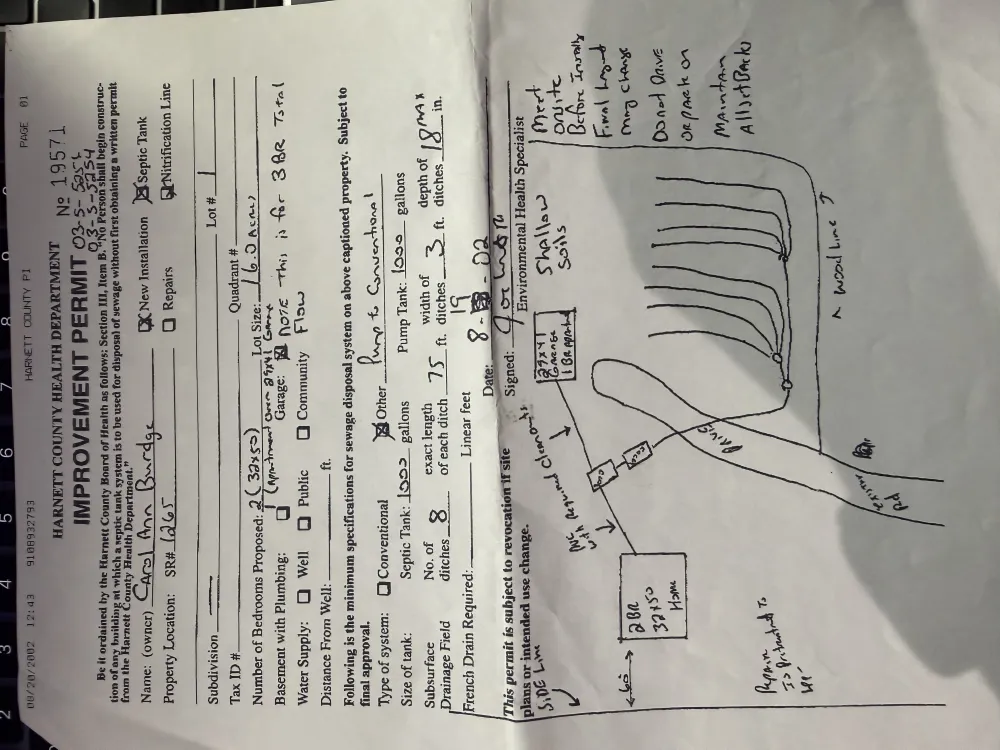 08/20/2002 12:43 9108932793 HARNETT COUNTY P1 PAGE 01
HARNETT COUNTY HEALTH DEPARTMENT № 19571
IMPROVEMENT PERMIT 03-5-5251
03-5-5254
Be it ordained by the Harnett County Board of Health as follows: Section III, Item B. "No Person shall begin construc-
tion of any building at which a septic tank system is to be used for disposal of sewage without first obtaining a written permit
from the Harnett County Health Department."
Name: (owner) Carol Ann Burdge New Installation Septic Tank
Property Location: SR# 1265 Repairs Nitrification Line
Subdivision Lot # 1
Tax ID # Quadrant #
Number of Bedrooms Proposed: 2 (32x50) Lot Size: 16.0 Acres
1 (Apartment over 29x41 Garage
Basement with Plumbing: Garage: NOTE this is for 3BR Total
Water Supply: Well Public Community Flow
Distance From Well: ft.
Following is the minimum specifications for sewage disposal system on above captioned property. Subject to
final approval.
Type of system: Conventional Other Pump to Conventional
Size of tank: Septic Tank: 1000 gallons Pump Tank: 1000 gallons
Subsurface No. of exact length width of depth of
Drainage Field ditches 8 of each ditch 75 ft. ditches 3 ft. ditches 18 MAX in.
French Drain Required: Linear feet
Date: 8-19-02
This permit is subject to revocation if site
plans or intended use change.
Signed:
Environmental Health Specialist
Side Line
Shallow
Soils
Meet
Onsite
Before Install
Final Layout
may change
Do not Drive
or park on
Maintain
All SetBacks
29x41
Garage
1 BR
PVC
with Required cleanouts
2BR
32x50
Home
existing
Rd.
wood Line
Repair